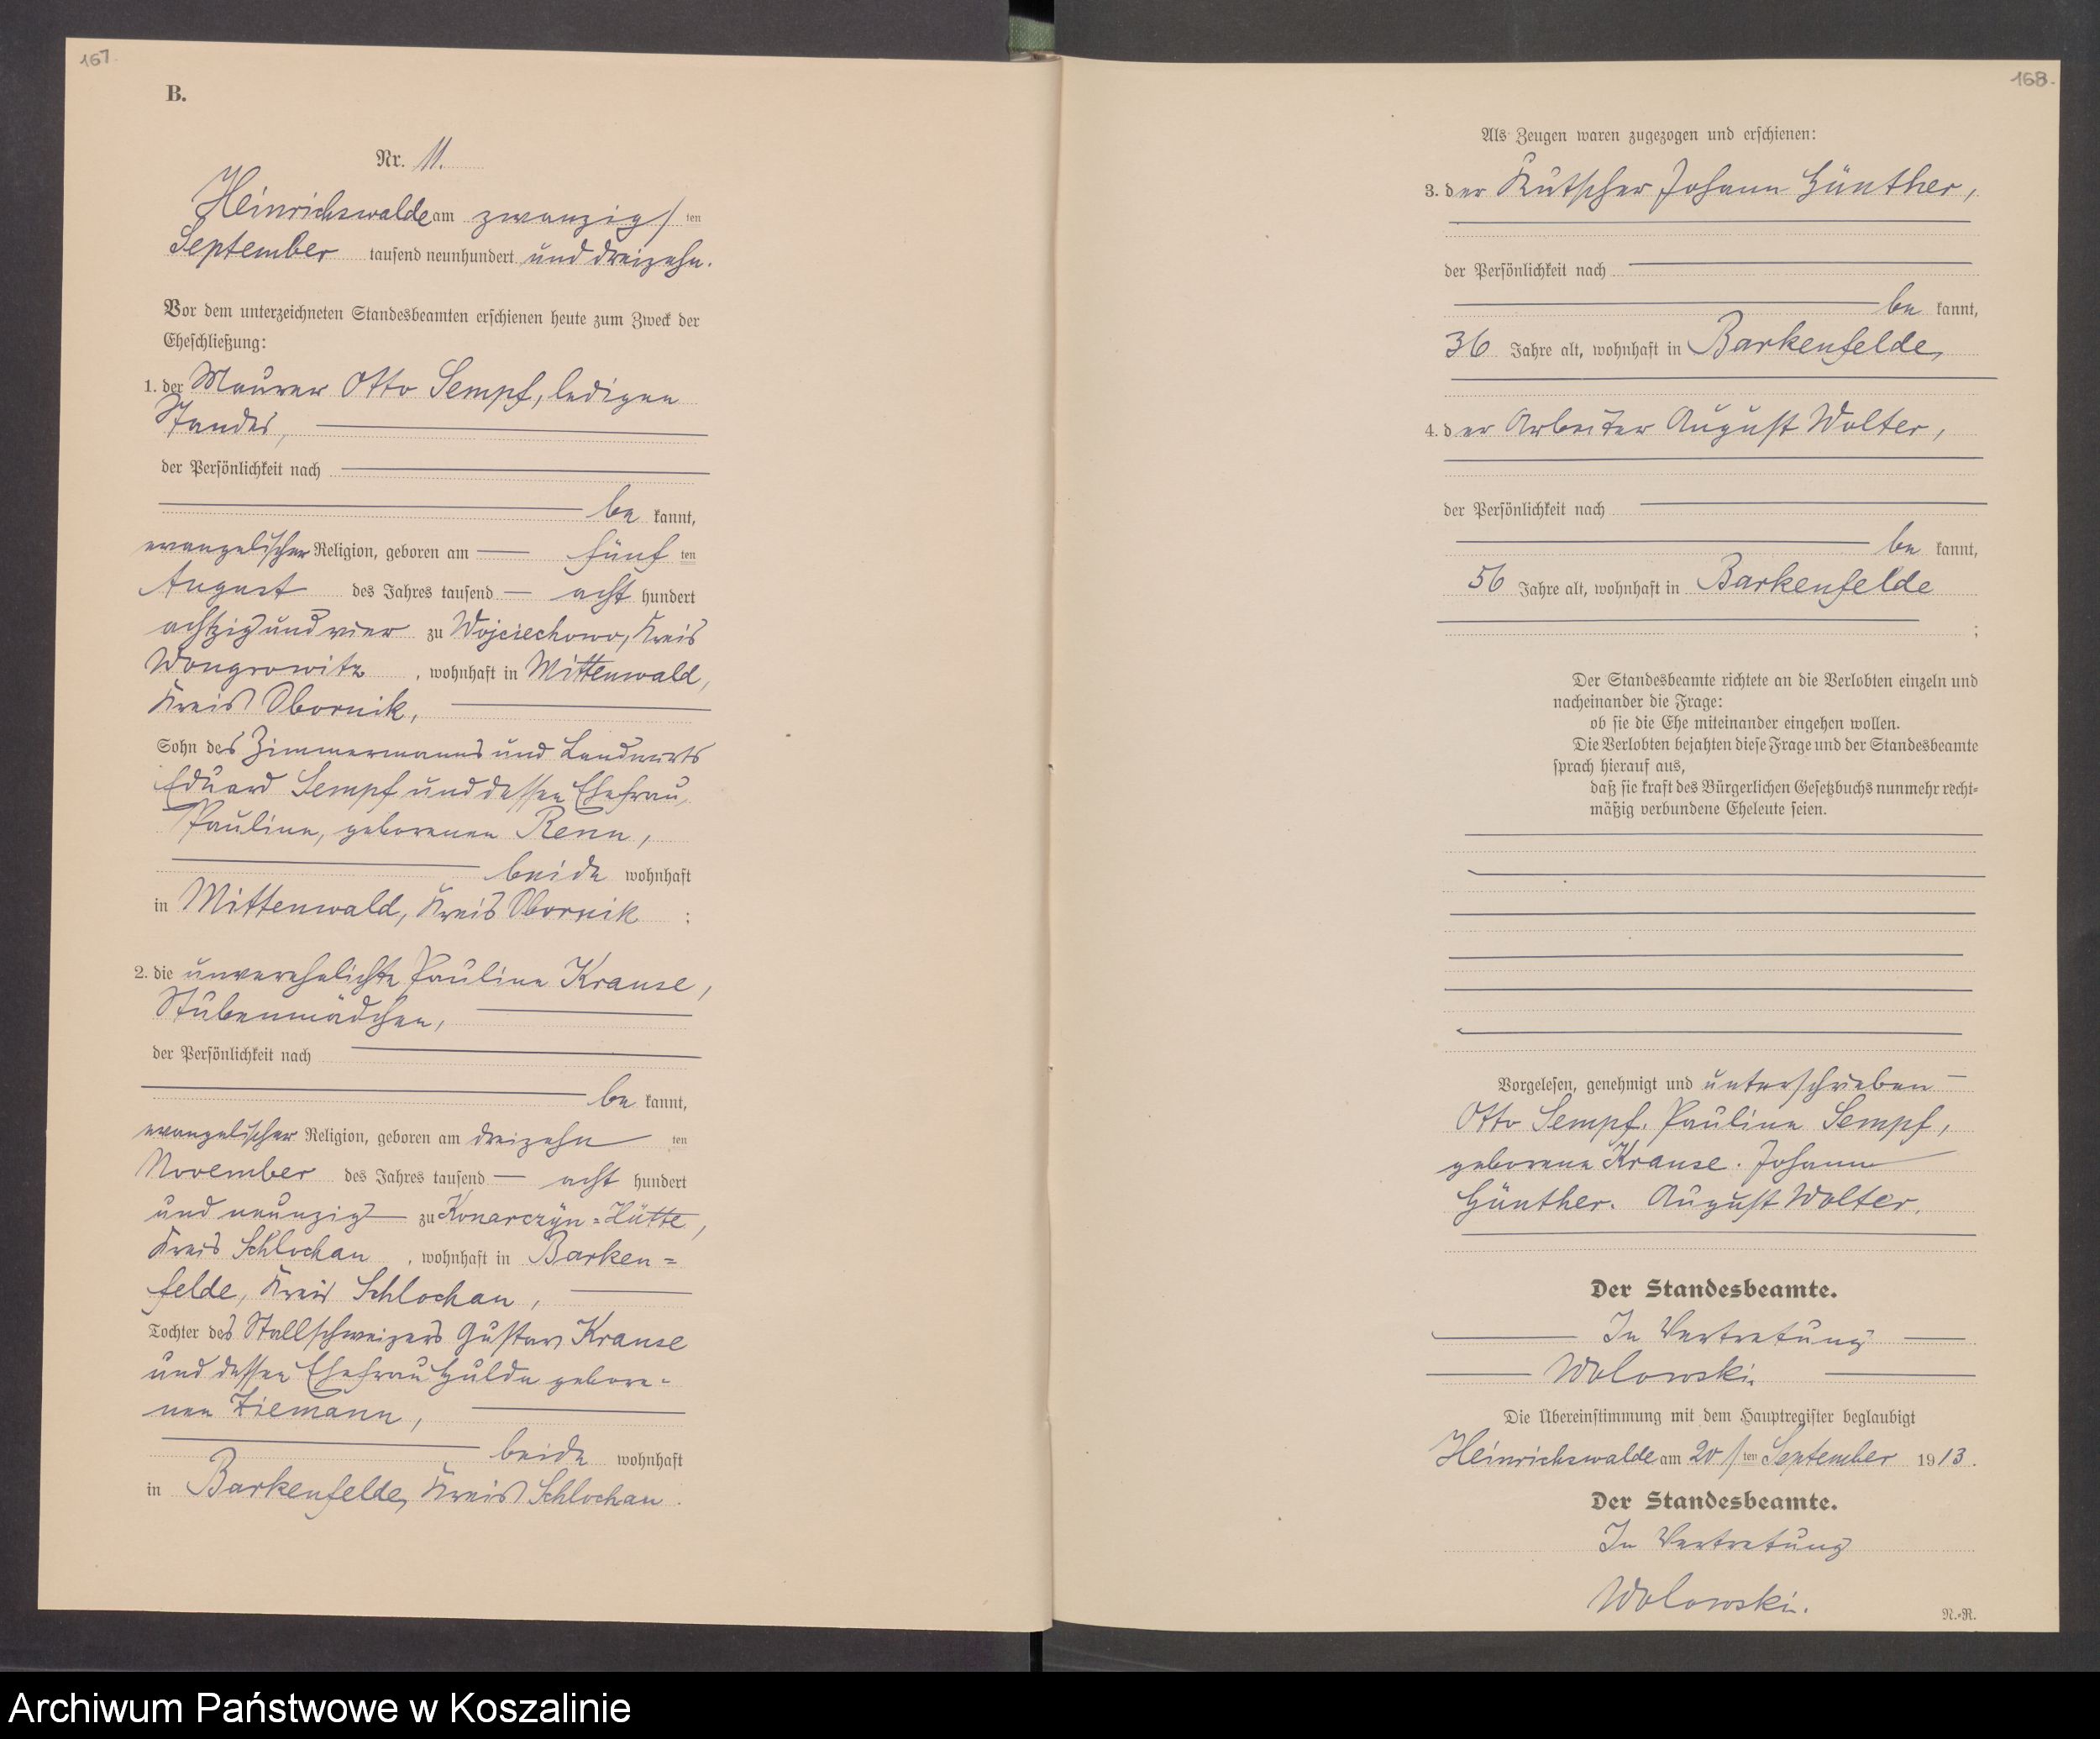 167.
B.
Nr. 11.
Heinrichswalde am zwanzigsten
September tausend neunhundert und dreizehn.
Vor dem unterzeichneten Standesbeamten erschienen heute zum Zweck der
Eheschließung:
1. der Maurer Otto Sempf, ledigen
Standes,
der Persönlichkeit nach
be kannt,
evangelischer Religion, geboren am fünf ten
August des Jahres tausend acht hundert
achtzig und vier zu Wojciechowo, Kreis
Wongrowitz, wohnhaft in Mittenwald,
Kreis Obornik,
Sohn des Zimmermanns und Landwirts
Eduard Sempf und dessen Ehefrau,
Pauline, geborenen Renn,
beide wohnhaft
in Mittenwald, Kreis Obornik ;
2. die unverehelichte Pauline Krause,
Stubenmädchen,
der Persönlichkeit nach
be kannt,
evangelischer Religion, geboren am dreizehn ten
November des Jahres tausend acht hundert
und neunzig zu Konarczyn=Hütte,
Kreis Schlochau, wohnhaft in Barken=
felde, Kreis Schlochau,
Tochter des Stallschweizers Gustav Krause
und dessen Ehefrau Hulda gebore-
nen Ziemann,
beide wohnhaft
in Barkenfelde, Kreis Schlochau.
168.
Als Zeugen waren zugezogen und erschienen:
3. der Kutscher Johann Günther,
der Persönlichkeit nach
be kannt,
36 Jahre alt, wohnhaft in Barkenfelde,
4. der Arbeiter August Wolter,
der Persönlichkeit nach
be kannt,
56 Jahre alt, wohnhaft in Barkenfelde
;
Der Standesbeamte richtete an die Verlobten einzeln und
nacheinander die Frage:
ob sie die Ehe miteinander eingehen wollen.
Die Verlobten bejahten diese Frage und der Standesbeamte
sprach hierauf aus,
daß sie kraft des Bürgerlichen Gesetzbuchs nunmehr recht=
mäßig verbundene Eheleute seien.
Vorgelesen, genehmigt und unterschrieben
Otto Sempf. Pauline Sempf,
geborene Krause. Johann
Günther. August Wolter.
Der Standesbeamte.
In Vertretung
Wolowski.
Die Übereinstimmung mit dem Hauptregister beglaubigt
Heinrichswalde am 20 ten September 1913.
Der Standesbeamte.
In Vertretung
Wolowski.
N.=R.
Archiwum Państwowe w Koszalinie